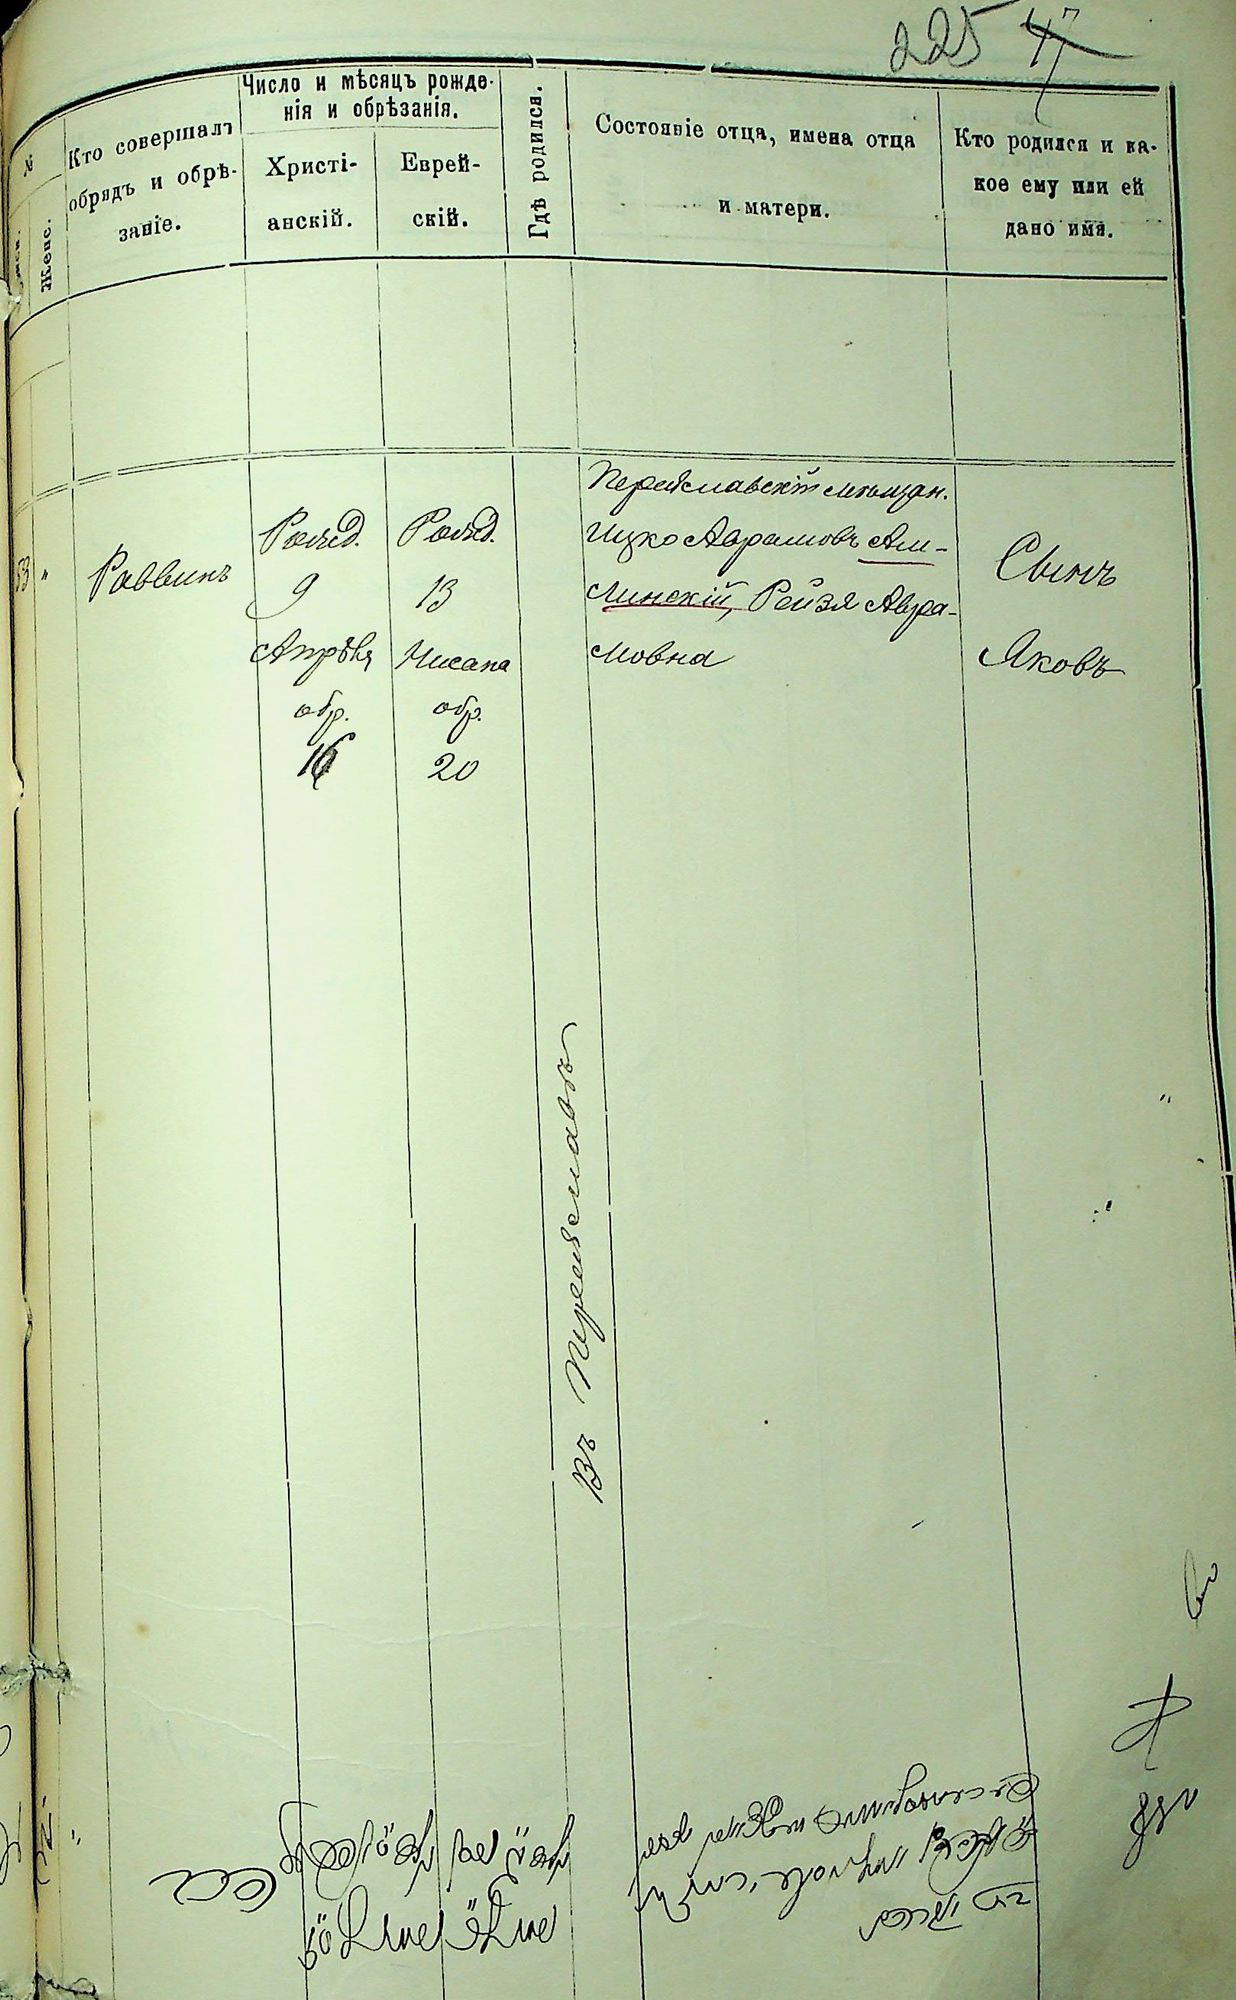 225 47
№
Женс.
Кто совершалъ
обрядъ и обрѣ-
заніе.
Число и мѣсяцъ рожде-
нія и обрѣзанія.
Христі-
анскій.
Еврей-
скій.
Гдѣ родился.
Состояніе отца, имена отца
и матери.
Кто родился и ка-
кое ему или ей
дано имя.
53 "
Раввинъ
Рожд.
9
Апрѣля
обр.
16
Рожд.
13
Нисана
обр.
20
Въ Переяславѣ
Переяславскій мѣщан.
Ицко Аврамовъ Ам-
линскій, Рейзя Авра-
мовна
Сынъ
Яковъ